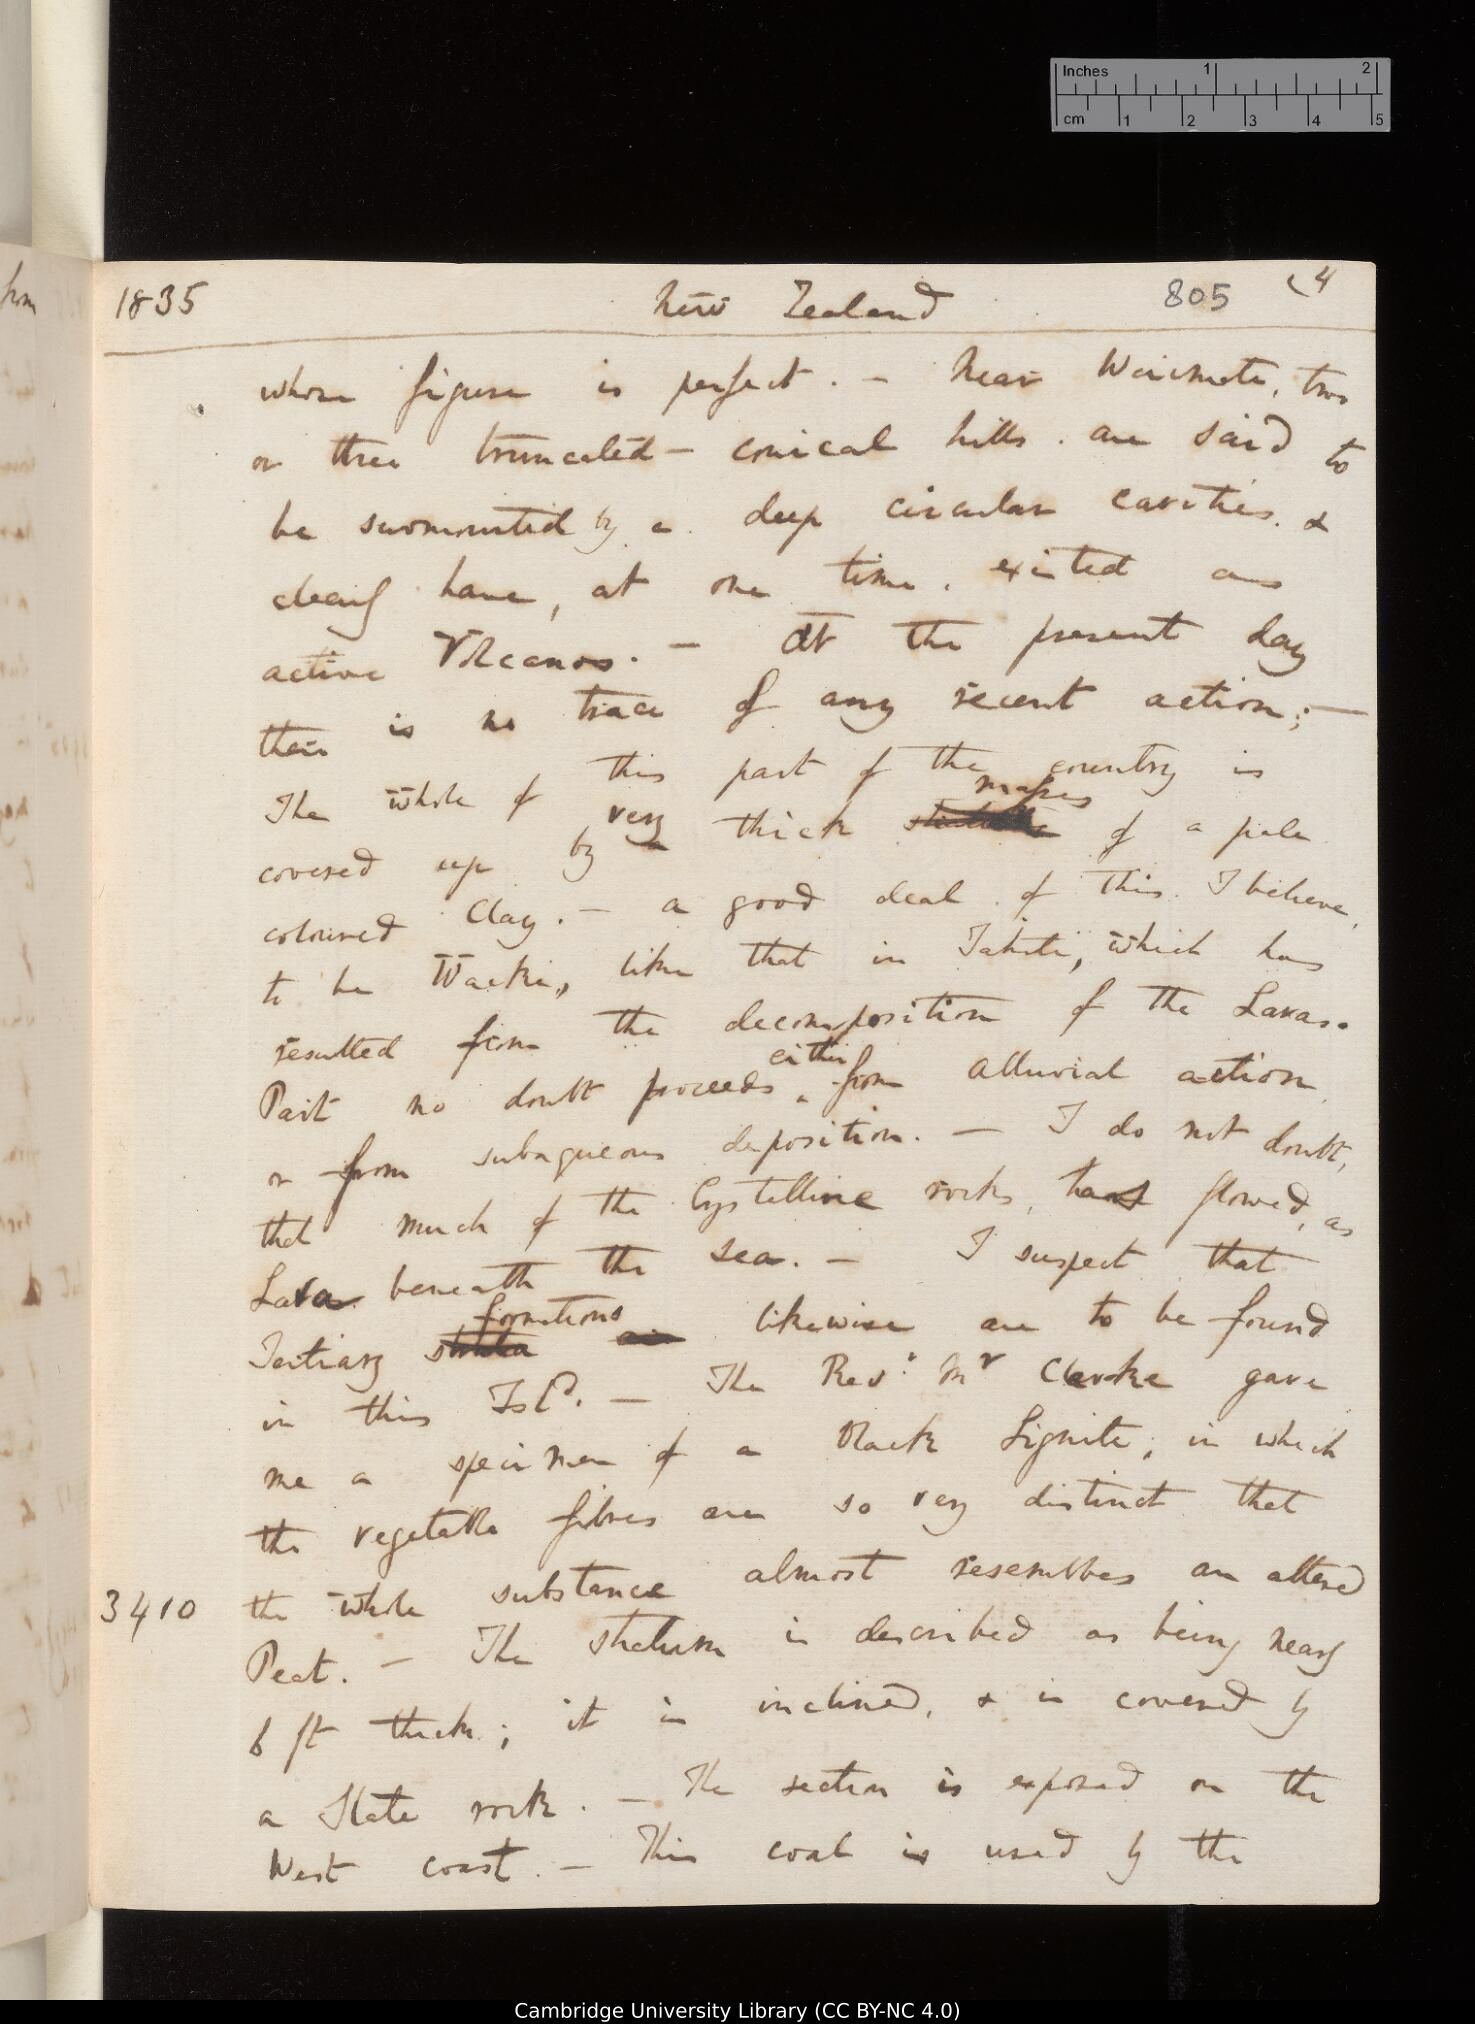 Inches 1 2
cm 1 2 3 4 5
1835 New Zealand 805 (4
whose figure is perfect. — Near Waimate, two
or three truncated — conical hills. are said to
be surmounted by a deep circular cavities. &
clearly have, at one time. existed as
active Volcanos. — At the present day
there is no trace of any recent action; —
The whole of this part of the country is
masses
covered up by very thick of a pale
coloured Clay. — a good deal of this I believe,
to be Wacke, like that in Tahiti, which has
resulted from the decomposition of the Lavas.
either
Part no doubt proceeds from alluvial action
or from subaqueous deposition. — I do not doubt,
that much of the Crystelline rocks, have flowed, as
Lava beneath the sea. — I suspect that
formations
Tertiary strata likewise are to be found
in this Isd. — The Revd. Mr Clarke gave
me a specimen of a black Lignite, in which
the vegetable fibres are so very distinct that
3410 the whole substance almost resembles an altered
Peat. — The stratum is described as being nearly
6 ft thick; it is inclined, & is covered by
a Slate rock. — The section is exposed on the
West coast. — This coal is used by the
from
Cambridge University Library (CC BY-NC 4.0)